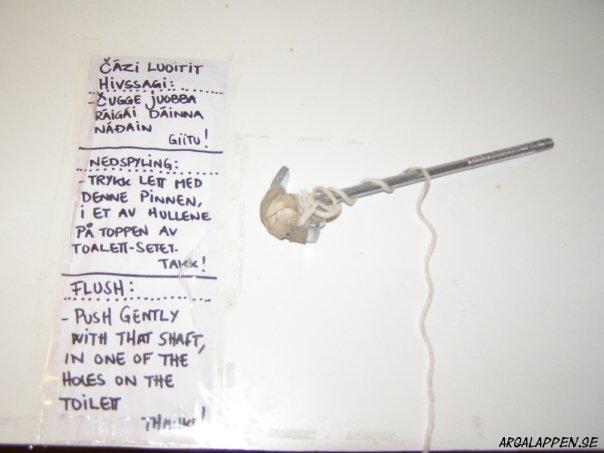 ČÁZI LUOITIT
HIVSSAGI:
- ČUGGE JUOBBA
RÁIGÁI DÁINNA
NÁĐAIN
GIITU!
NEDSPYLING:
- TRYKK LETT MED
DENNE PINNEN,
I ET AV HULLENE
PÅ TOPPEN AV
TOALETT-SETET.
TAKK!
FLUSH:
- PUSH GENTLY
WITH THAT SHAFT,
IN ONE OF THE
HOLES ON THE
TOILETT
THANKS!
ARGALAPPEN.SE